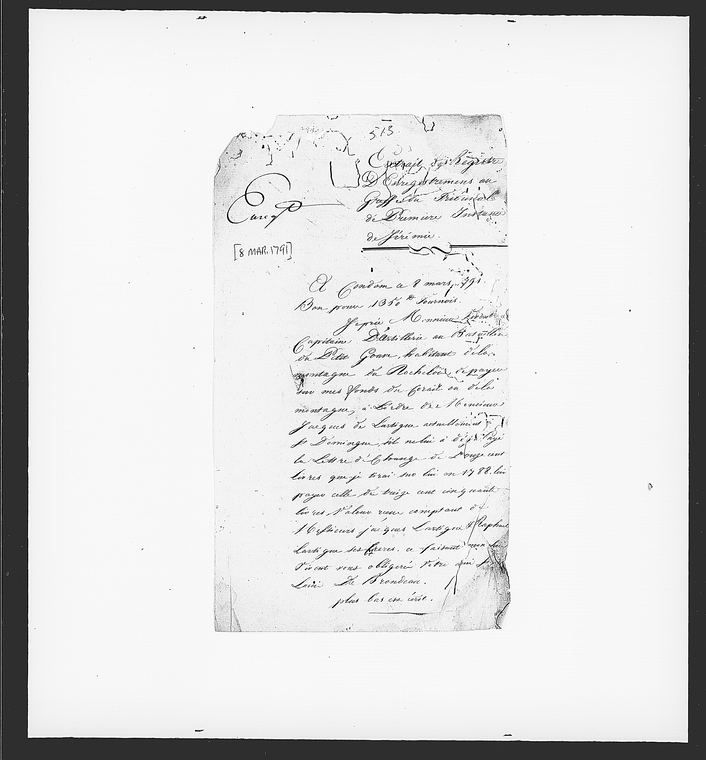 513
Extrait des Registre
D'Enregistrement au
Greffe du Tribunal
de Premiere Instance
de Jérémie.
[8 MAR. 1791]
A Condom ce 8 mars 1791
Bon pour 1350 tt tournois.
Je prie Monsieur
Capitaine D'artillerie au Bataillon
du Petit Goave, habitant dela
montagne du Rochelois, de payer
sur mes fonds du Corail ou dela
montagne, à L'ordre de Messieurs
Jacques de Lartigue actuellement
St Domingue, s'il ne lui a déjà Payé
la Lettre de Change de Douze cent
livres que je tirai sur lui en 1788. lui
payer celle de treize cent cinquante
livres Valeur reçue comptant de
Messieurs jacques Lartigue & Raphael
Lartigue ses freres. ce faisant
Vivant vous obligeré Votre ami
Laini De Brondeau.
plus bas est écrit.